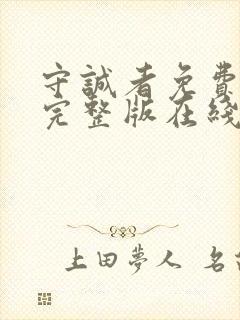 守誠者免費
完整版在綫
上田夢人 名